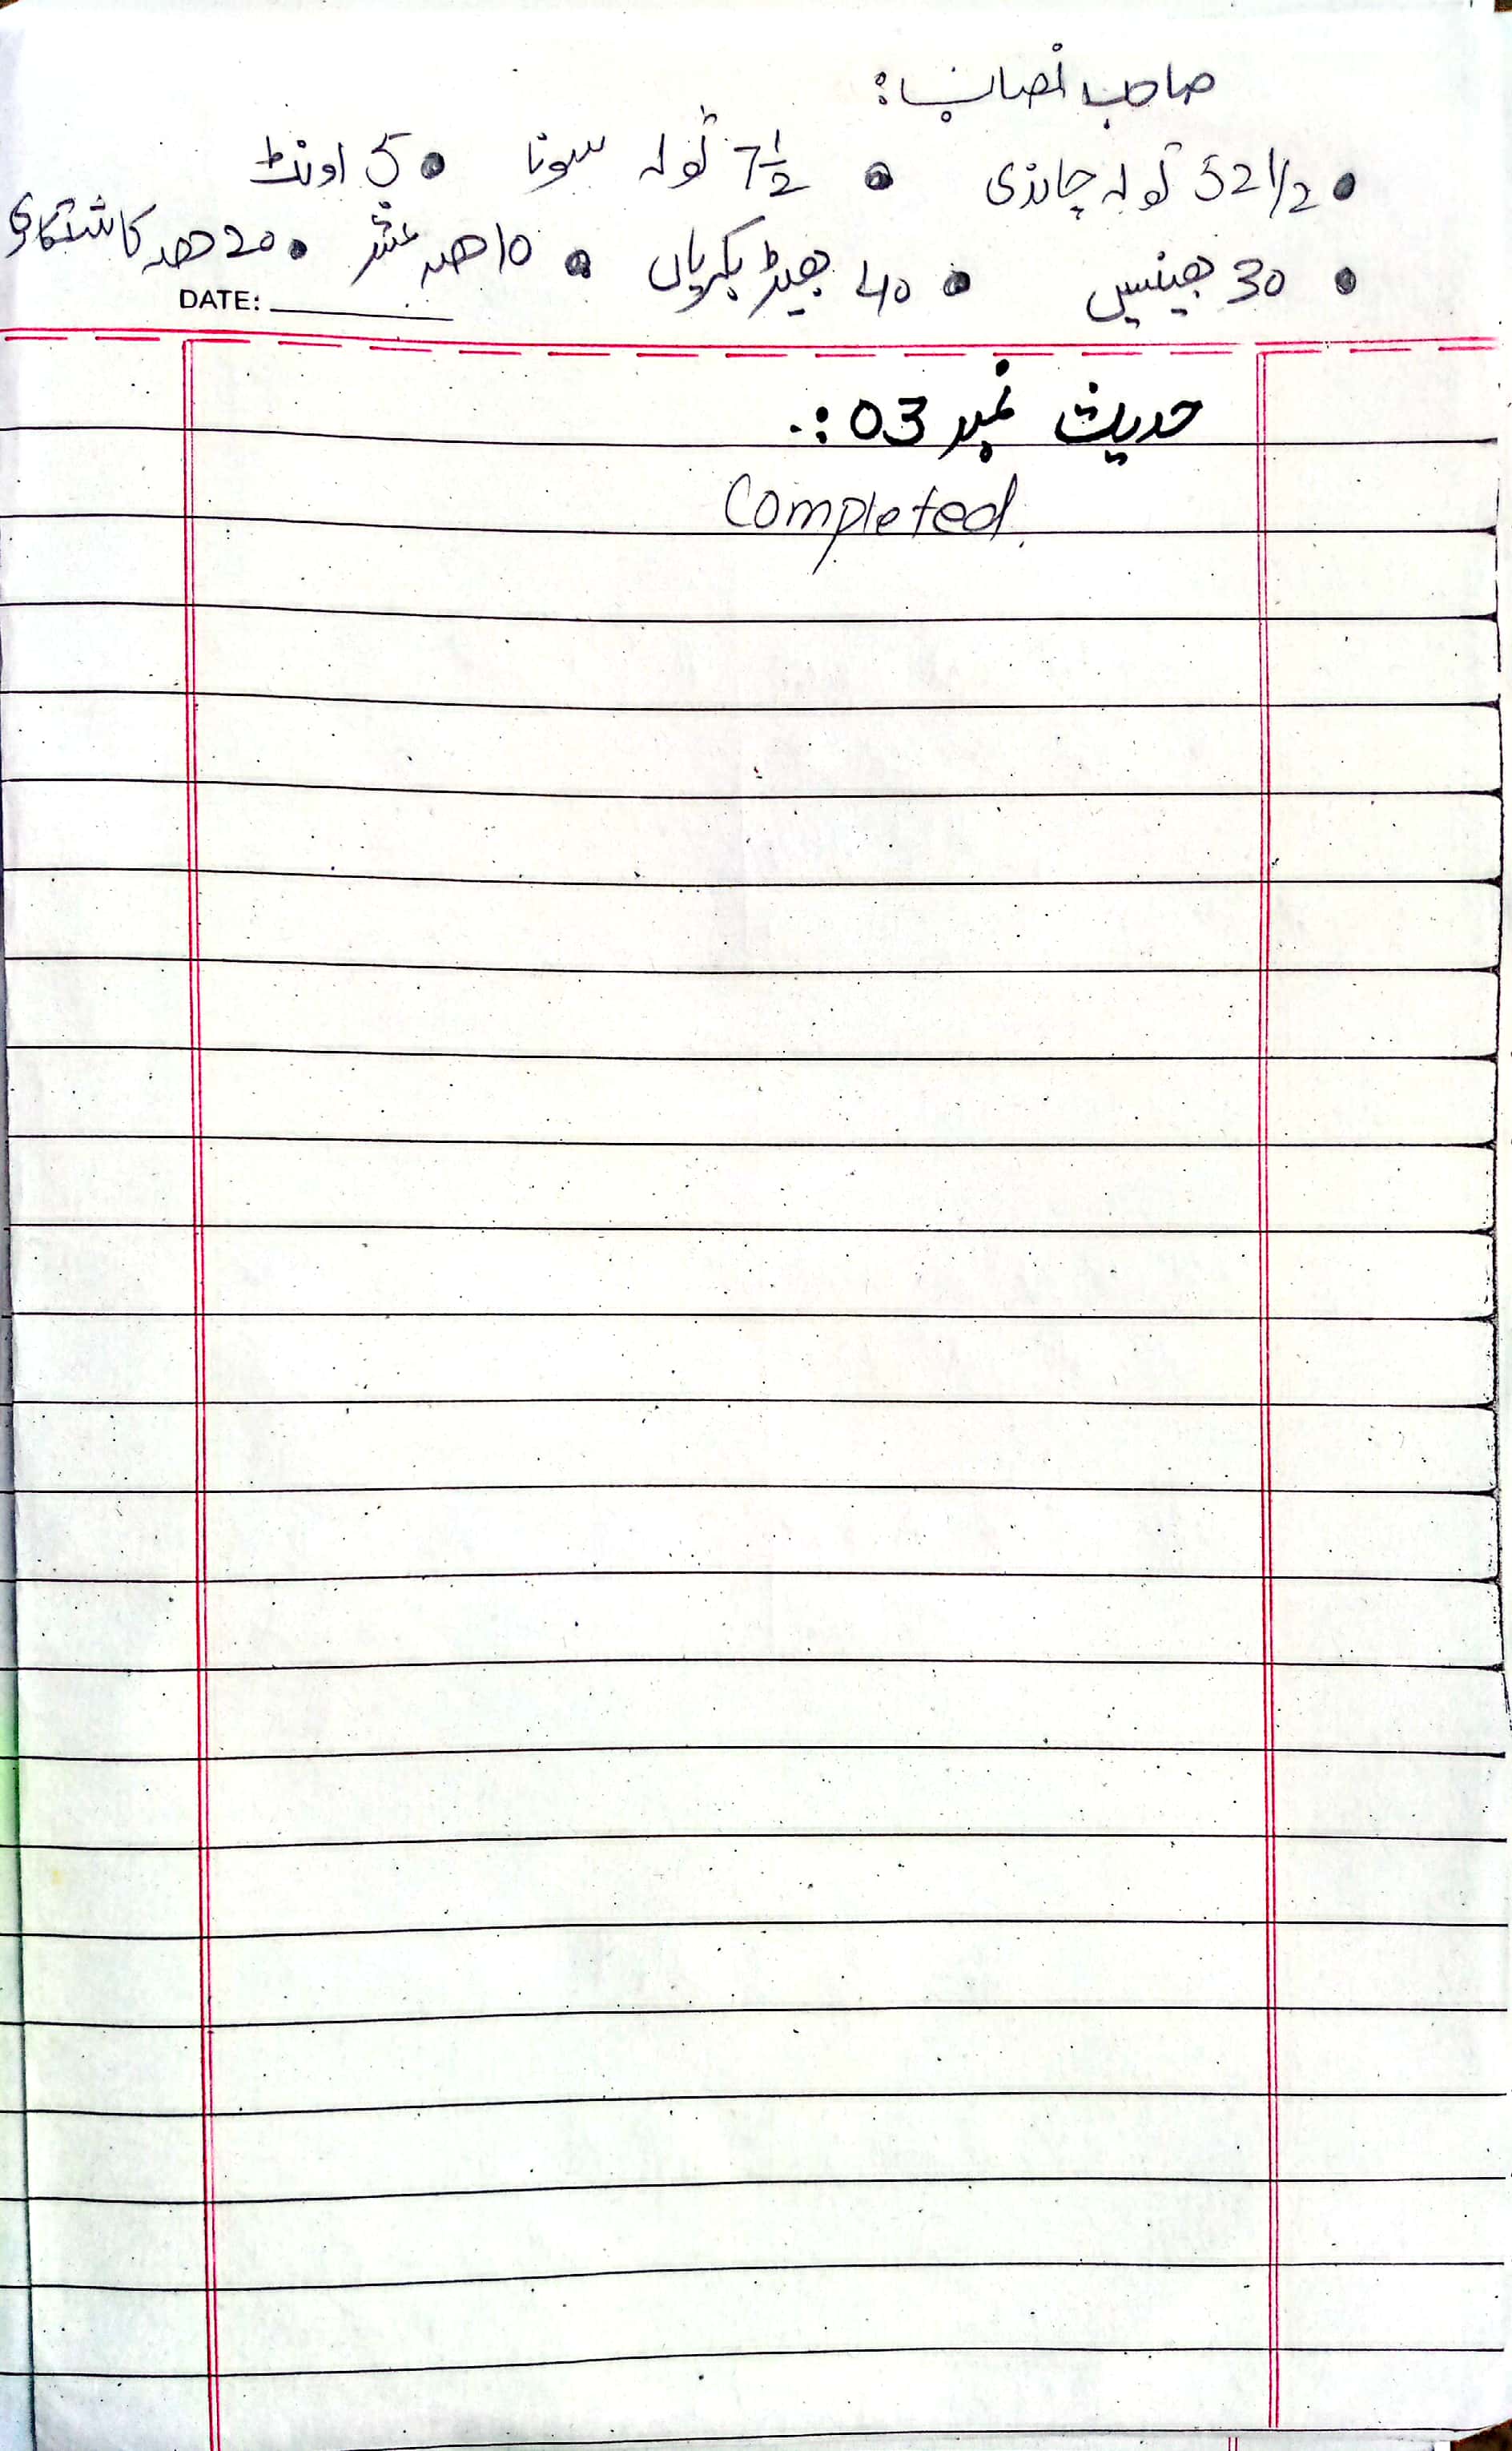 صاحب نصاب:
• 52 1/2 تولہ چاندی • 7 1/2 تولہ سونا • 5 اونٹ
• 30 بھینسیں • 40 بھیڑ بکریاں • 10 حصہ عشر • 20 حصہ کاشتکاری
DATE:
حدیث نمبر 03:.
Completed.